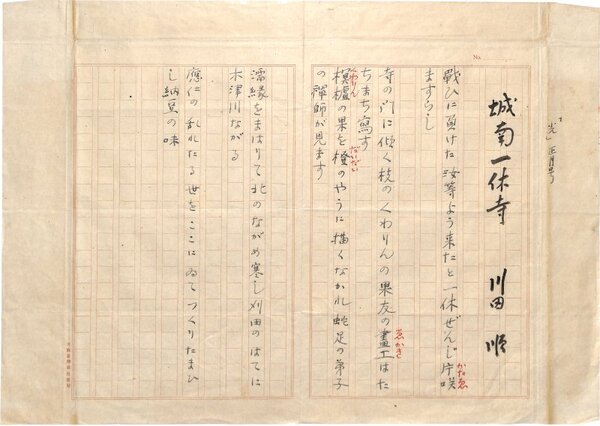 「光」正月号
No.
城南一休寺　川田順
戰ひに負けた汝等よう来たと一休ぜんじ片咲
かたゑ
ますらし
寺の门に傾く杖のくわりんの果友の畫工はた
ゑかき
ちまち寫す
くわりん
榠樝の果を橙のやうに描くなかれ蛇足の弟子
だいだい
の禅師が見ます
濡縁をまはりて北のながめ寒し刈田のはてに
木津川ながる
應仁の乱れたる世をここにゐてつくりたまひ
し納豆の味